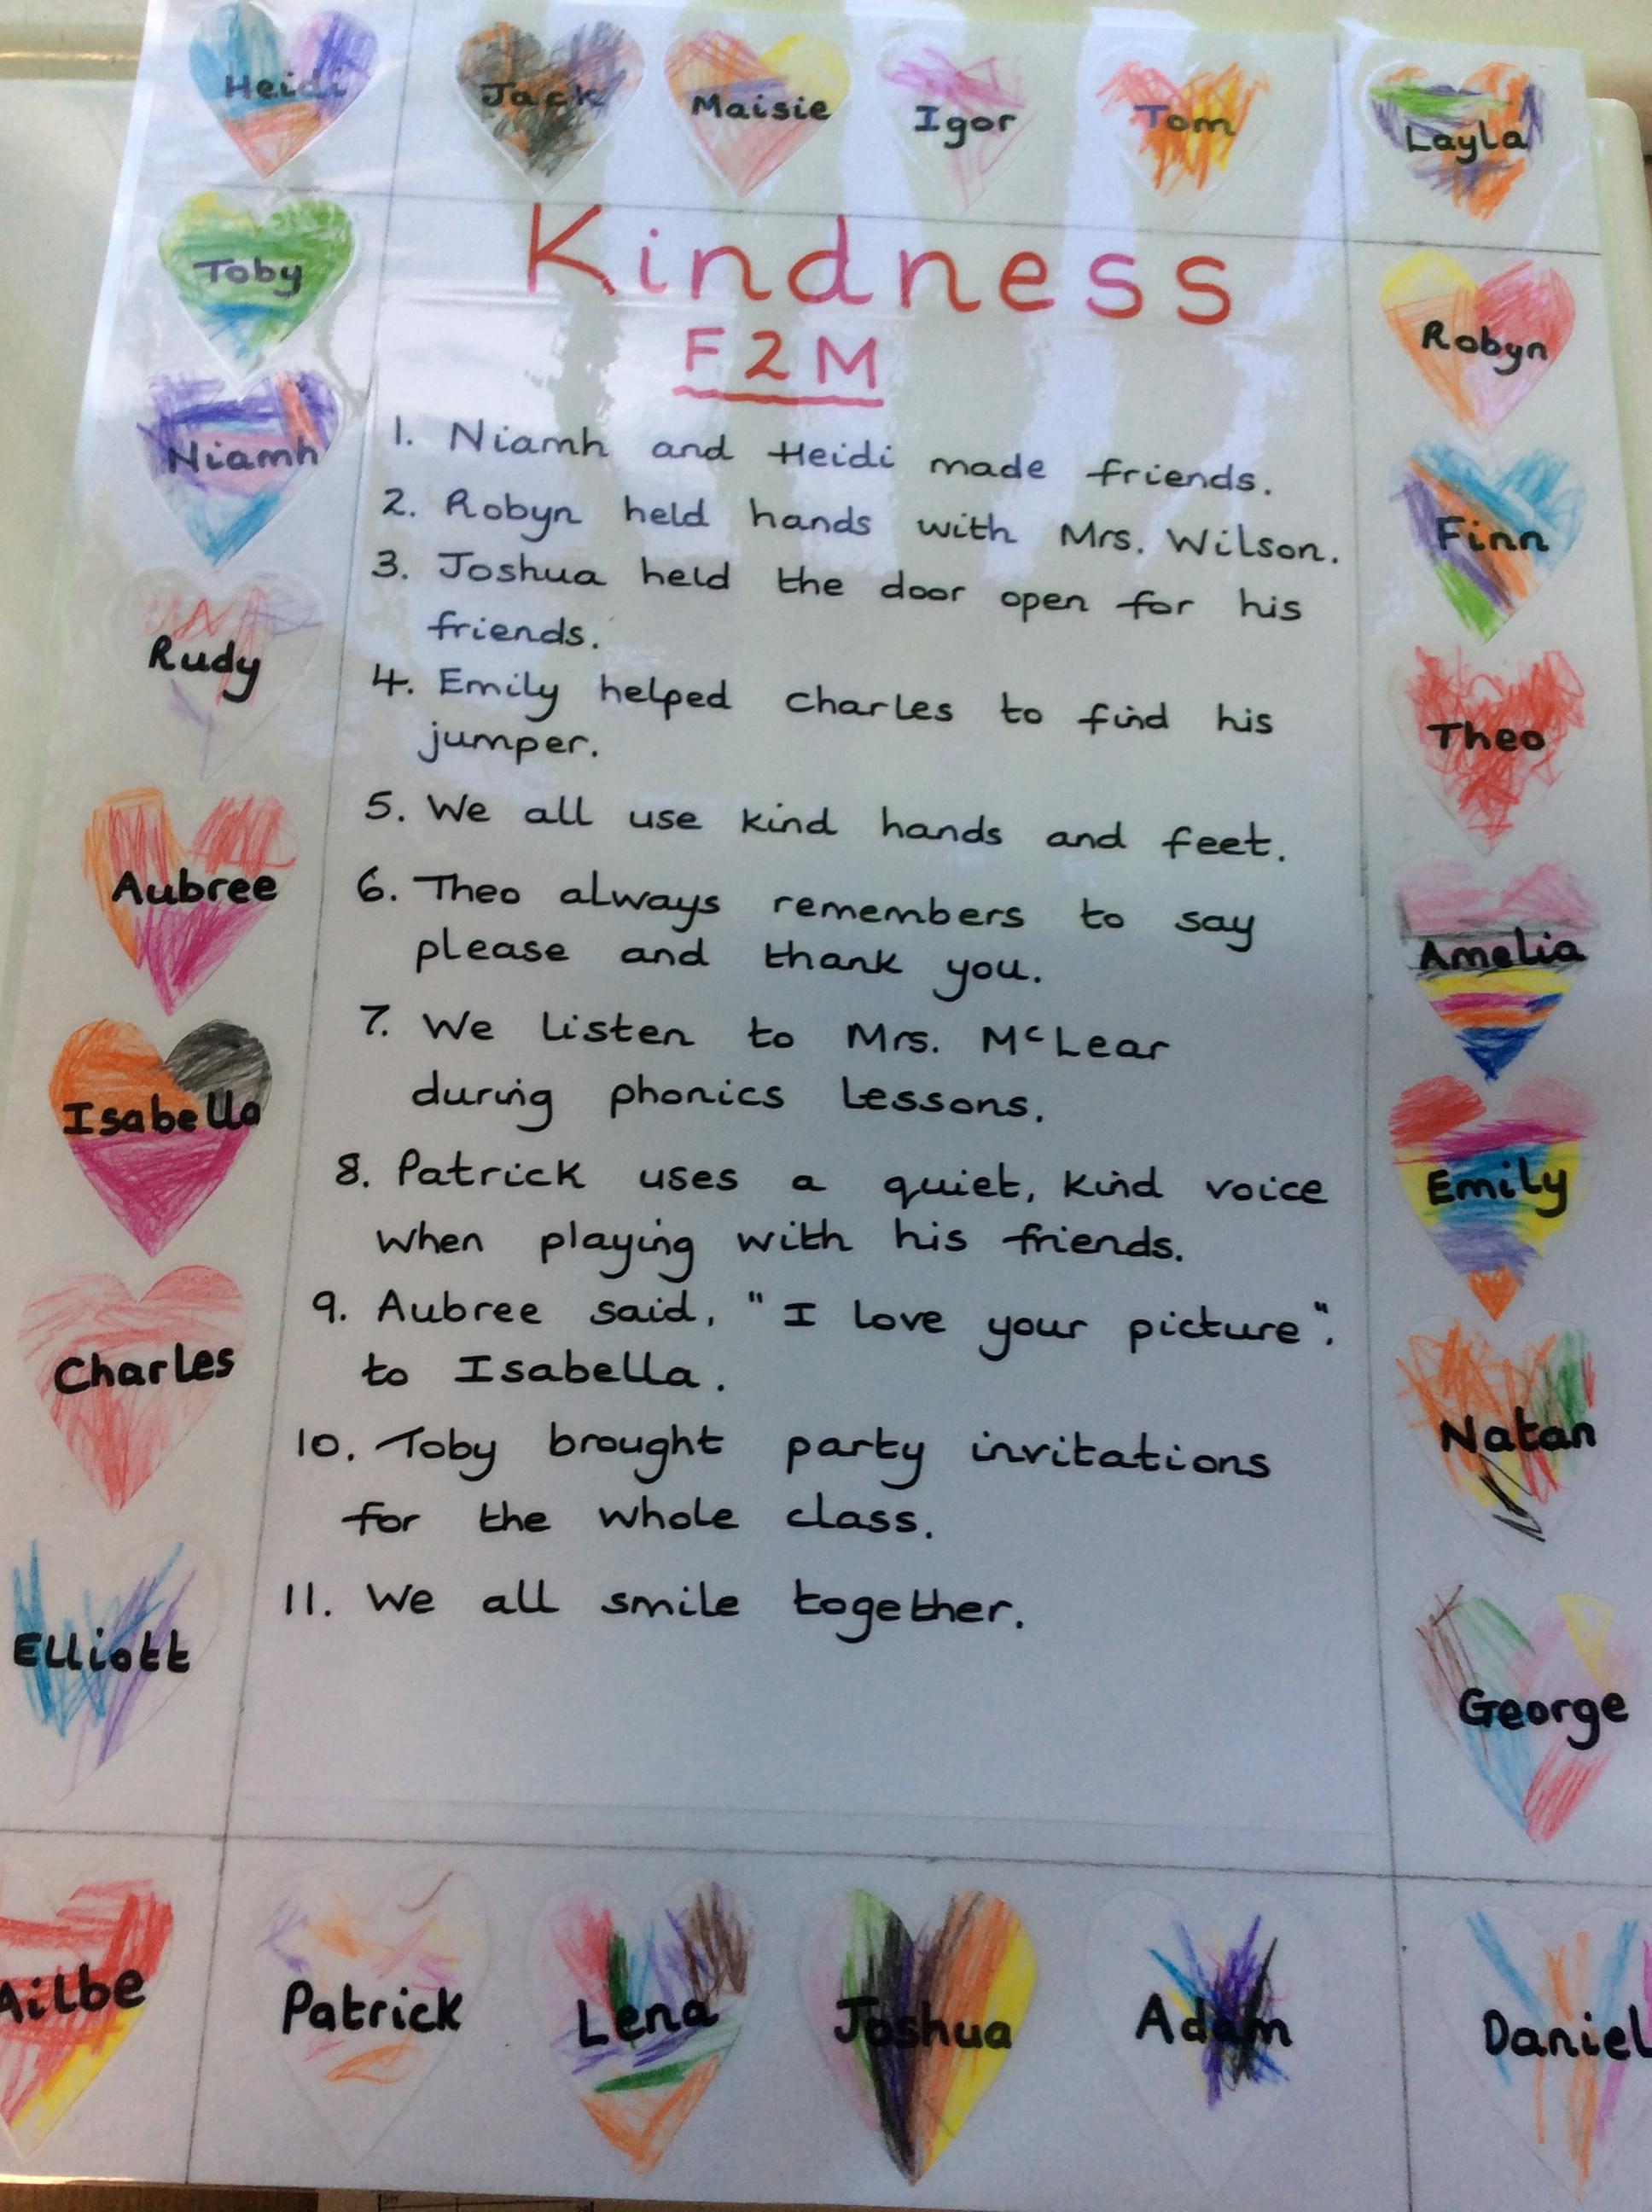 Heidi
Jack
Maisie
Igor
Tom
Layla
Toby
Niamh
Rudy
Aubree
Isabella
Charles
Elliott
Kindness
F2M
1. Niamh and Heidi made friends.
2. Robyn held hands with Mrs. Wilson.
3. Joshua held the door open for his
friends.
4. Emily helped Charles to find his
jumper.
5. We all use kind hands and feet.
6. Theo always remembers to say
please and thank you.
7. We listen to Mrs. McLear
during phonics lessons.
8. Patrick uses a quiet, kind voice
when playing with his friends.
9. Aubree said, "I love your picture".
to Isabella.
10. Toby brought party invitations
for the whole class.
11. We all smile together.
Robyn
Finn
Theo
Amelia
Emily
Natan
George
Ailbe
Patrick
Lena
Joshua
Adam
Daniel